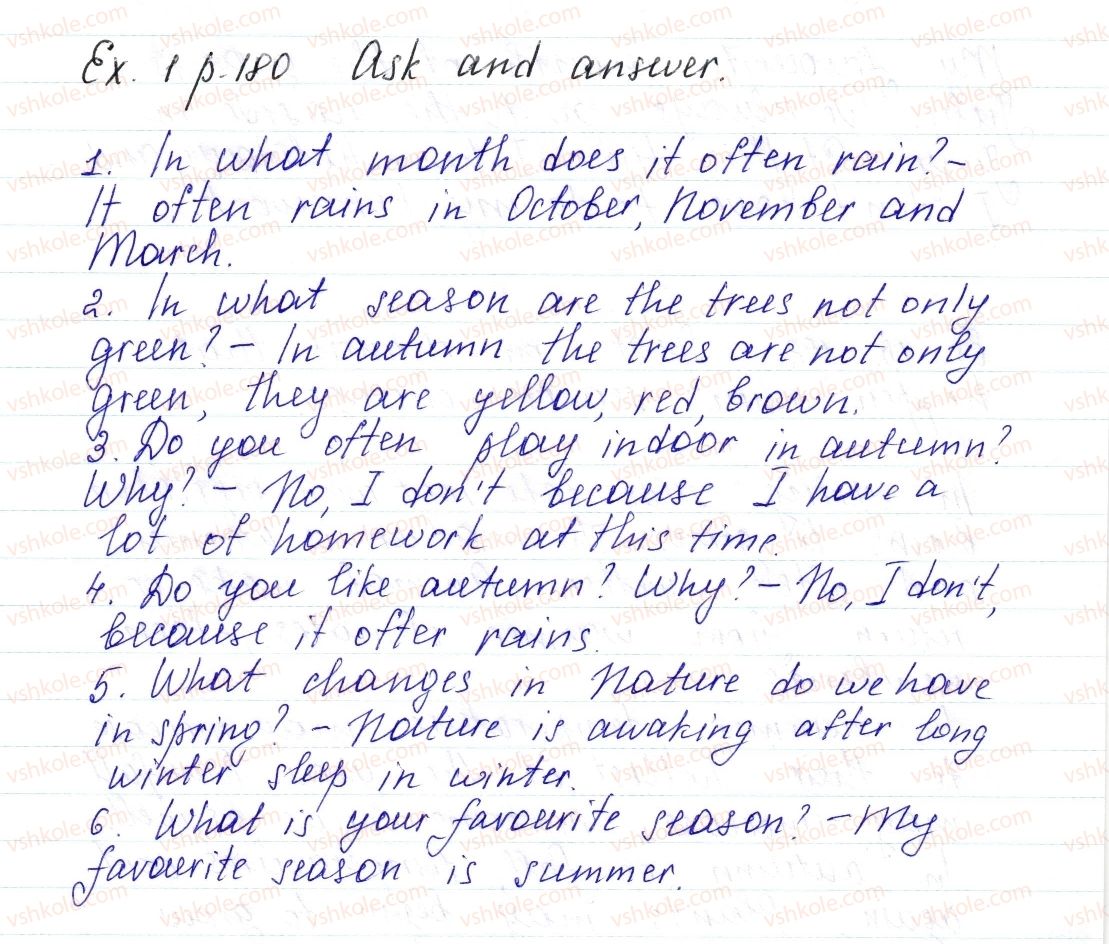 Ex. 1 p.180 Ask and answer.
1. In what month does it often rain? –
It often rains in October, November and
March.
2. In what season are the trees not only
green? – In autumn the trees are not only
green, they are yellow, red, brown.
3. Do you often play indoor in autumn?
Why? – No, I don't because I have a
lot of homework at this time.
4. Do you like autumn? Why? – No, I don't,
because it ofter rains.
5. What changes in nature do we have
in spring? – Nature is awaking after long
winter sleep in winter.
6. What is your favourite season? – My
favourite season is summer.